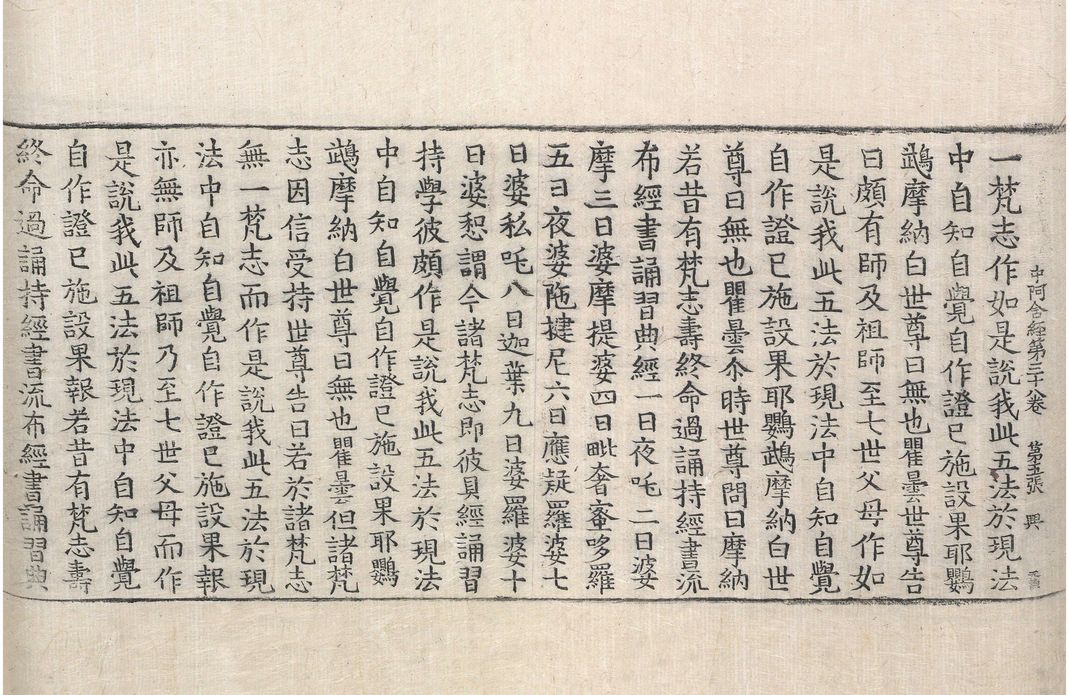 中阿含經第三十八卷 第五張 興
一梵志作如是說我此五法於現法
中自知自覺自作證已施設果耶鸚
鵡摩納白世尊曰無也瞿曇世尊告
曰頗有師及祖師至七世父母作如
是說我此五法於現法中自知自覺
自作證已施設果耶鸚鵡摩納白世
尊曰無也瞿曇尒時世尊問曰摩納
若昔有梵志壽終命過誦持經書流
布經書誦習典經一曰夜吒二曰婆
摩三曰婆摩提婆四曰毗奢蜜哆羅
五曰夜婆陁揵尼六曰應疑羅婆七
曰婆私吒八曰迦葉九曰婆羅婆十
曰婆惒謂今諸梵志即彼具經誦習
持學彼頗作是說我此五法於現法
中自知自覺自作證已施設果耶鸚
鵡摩納白世尊曰無也瞿曇但諸梵
志因信受持世尊告曰若於諸梵志
無一梵志而作是說我此五法於現
法中自知自覺自作證已施設果報
亦無師及祖師乃至七世父母而作
是說我此五法於現法中自知自覺
自作證已施設果報若昔有梵志壽
終命過誦持經書流布經書誦習典